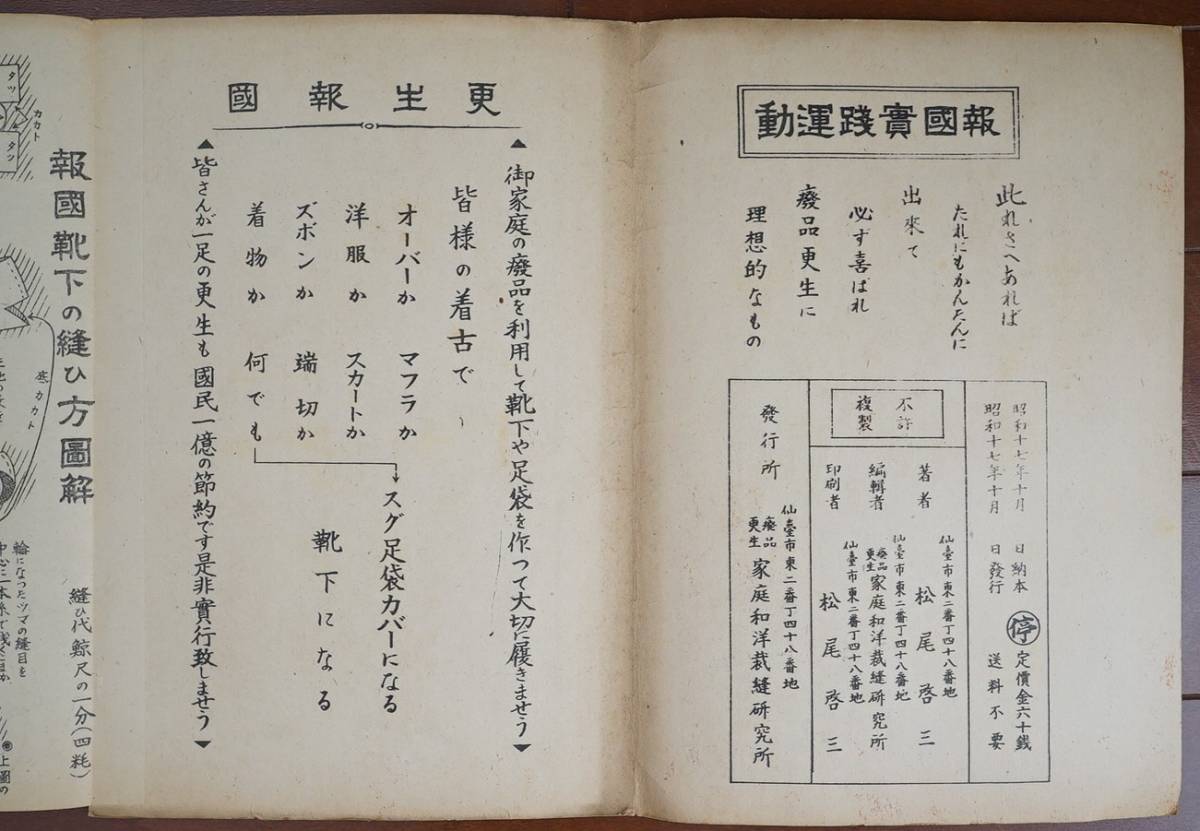 報國實踐運動
此れさへあれば
たれにもかんたんに
出來て
必ず喜ばれ
廢品更生に
理想的なもの
昭和十七年十月　日納本
昭和十七年十月　日發行
停　定價金六十錢
送料不要
不許複製
著者　仙臺市東二番丁四十八番地　松尾啓三
編輯者　仙臺市東二番丁四十八番地　廢品更生　家庭和洋裁縫研究所
印刷者　仙臺市東二番丁四十八番地　松尾啓三
發行所　仙臺市東二番丁四十八番地　廢品更生　家庭和洋裁縫研究所
更生報國
▲御家庭の廢品を利用して靴下や足袋を作つて大切に履きませう▼
皆様の着古で、
オーバーか　マフラか
洋服か　スカートか
ズボンか　端切か
着物か　何でも
→スグ足袋カバーになる
靴下になる
▲皆さんが一足の更生も國民一億の節約です是非實行致しませう▼
報國靴下の縫ひ方圖解
縫ひ代鯨尺の一分（四粍）
タツ
カカト
タツ
カカト
輪になつたツマの縫目を
上圖の